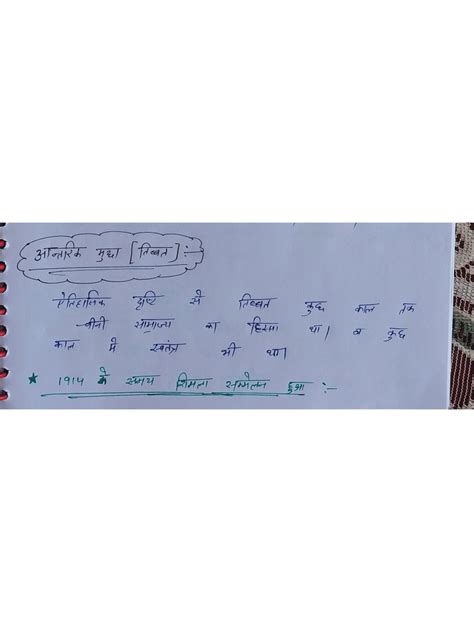 आन्तरिक मुद्दा [तिब्बत] :-
ऐतिहासिक दृष्टि से तिब्बत कुछ काल तक
चीनी साम्राज्य का हिस्सा था। व कुछ
काल में स्वतंत्र भी था।
★ 1914 के समय शिमला सम्मेलन हुआ :-